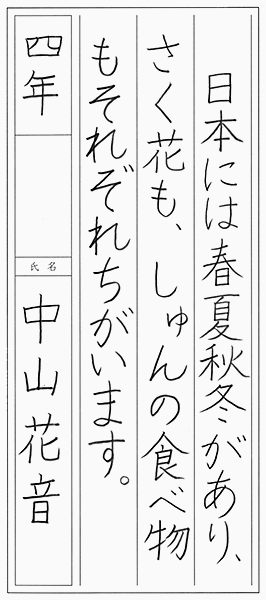 日本には春夏秋冬があり、
さく花も、しゅんの食べ物
もそれぞれちがいます。
四年
氏名
中山花音